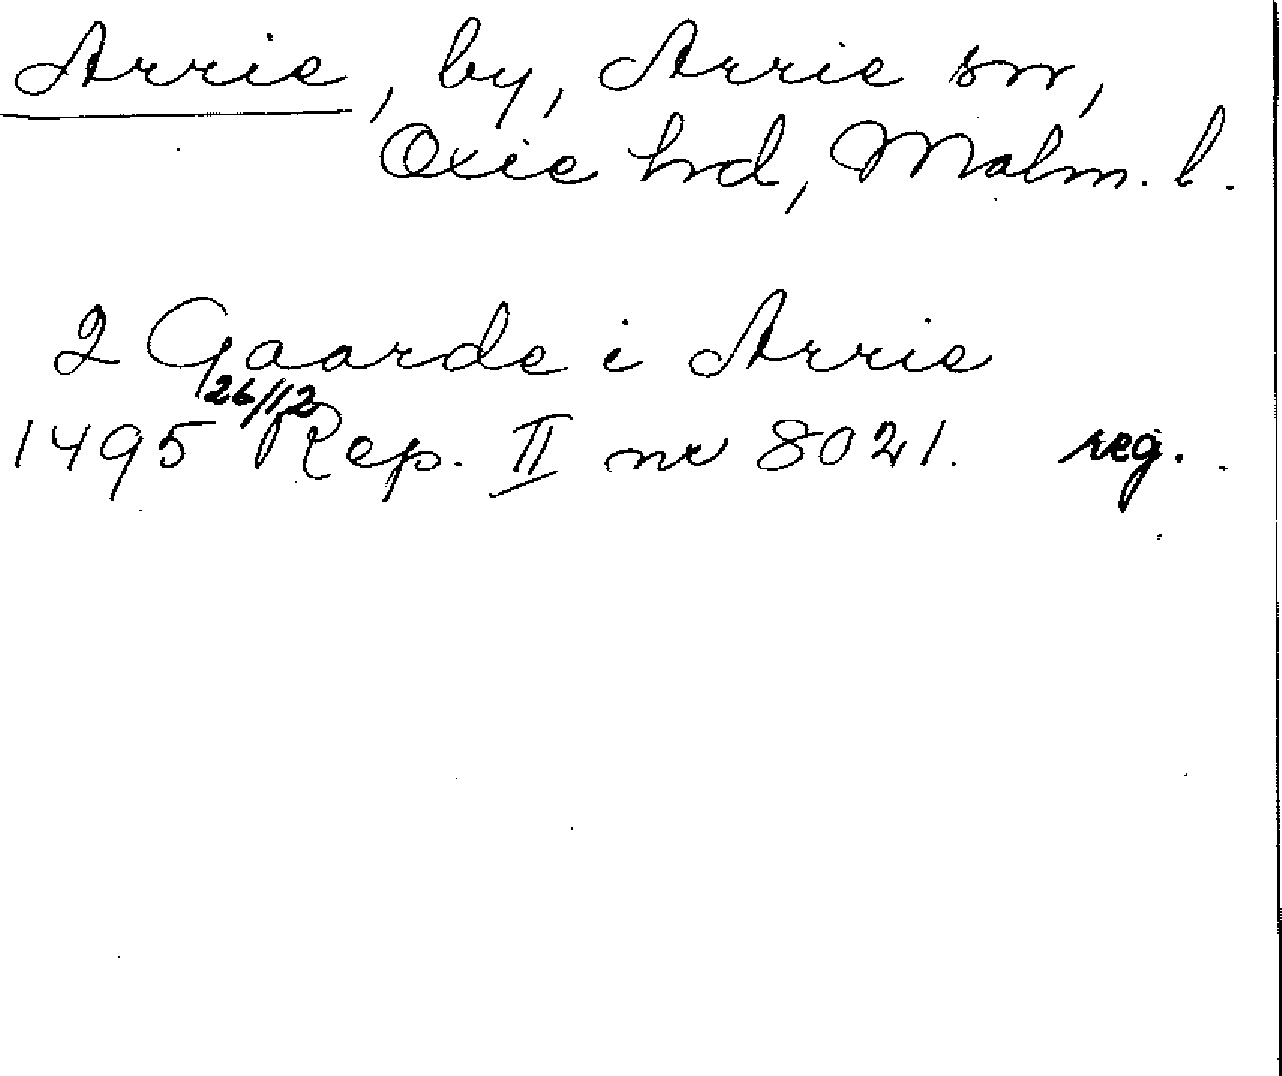 Arrie, by, Arrie sn,
Oxie hd, Malm. l.
2 Gaarde i Arrie
1495 26/12 Rep. II nr 8021. reg.